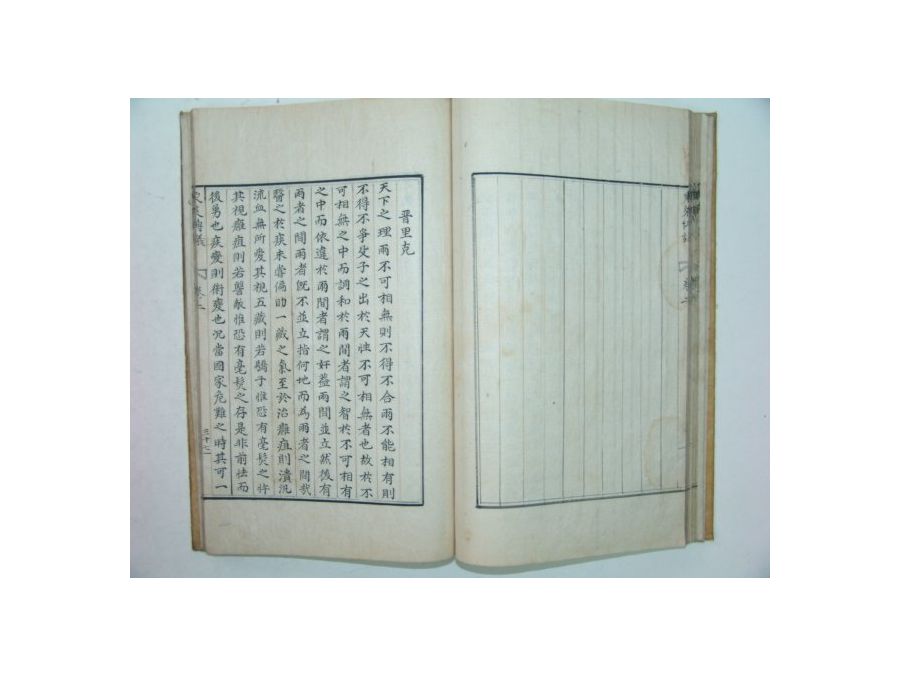 晋里克
天下之理兩不可相無則不得不合兩不能相有則
不得不爭父子之出於天性不可相無者也故於不
可相無之中而調和於兩間者謂之智於不可相有
之中而依違於兩間者謂之奸蓋兩間並立然後有
兩者之間兩者旣不並立指何地而為兩者之間哉
醫之於疾未嘗偏助一藏之氣至於治癰疽則潰肌
流血無所愛其視五藏則若驕子惟恐有毫髮之忤
其視癰疽則若讐敵惟恐有毫髮之存是非前怯而
後勇也疾變則術變也況當國家危難之時其可一
東萊博議 卷二